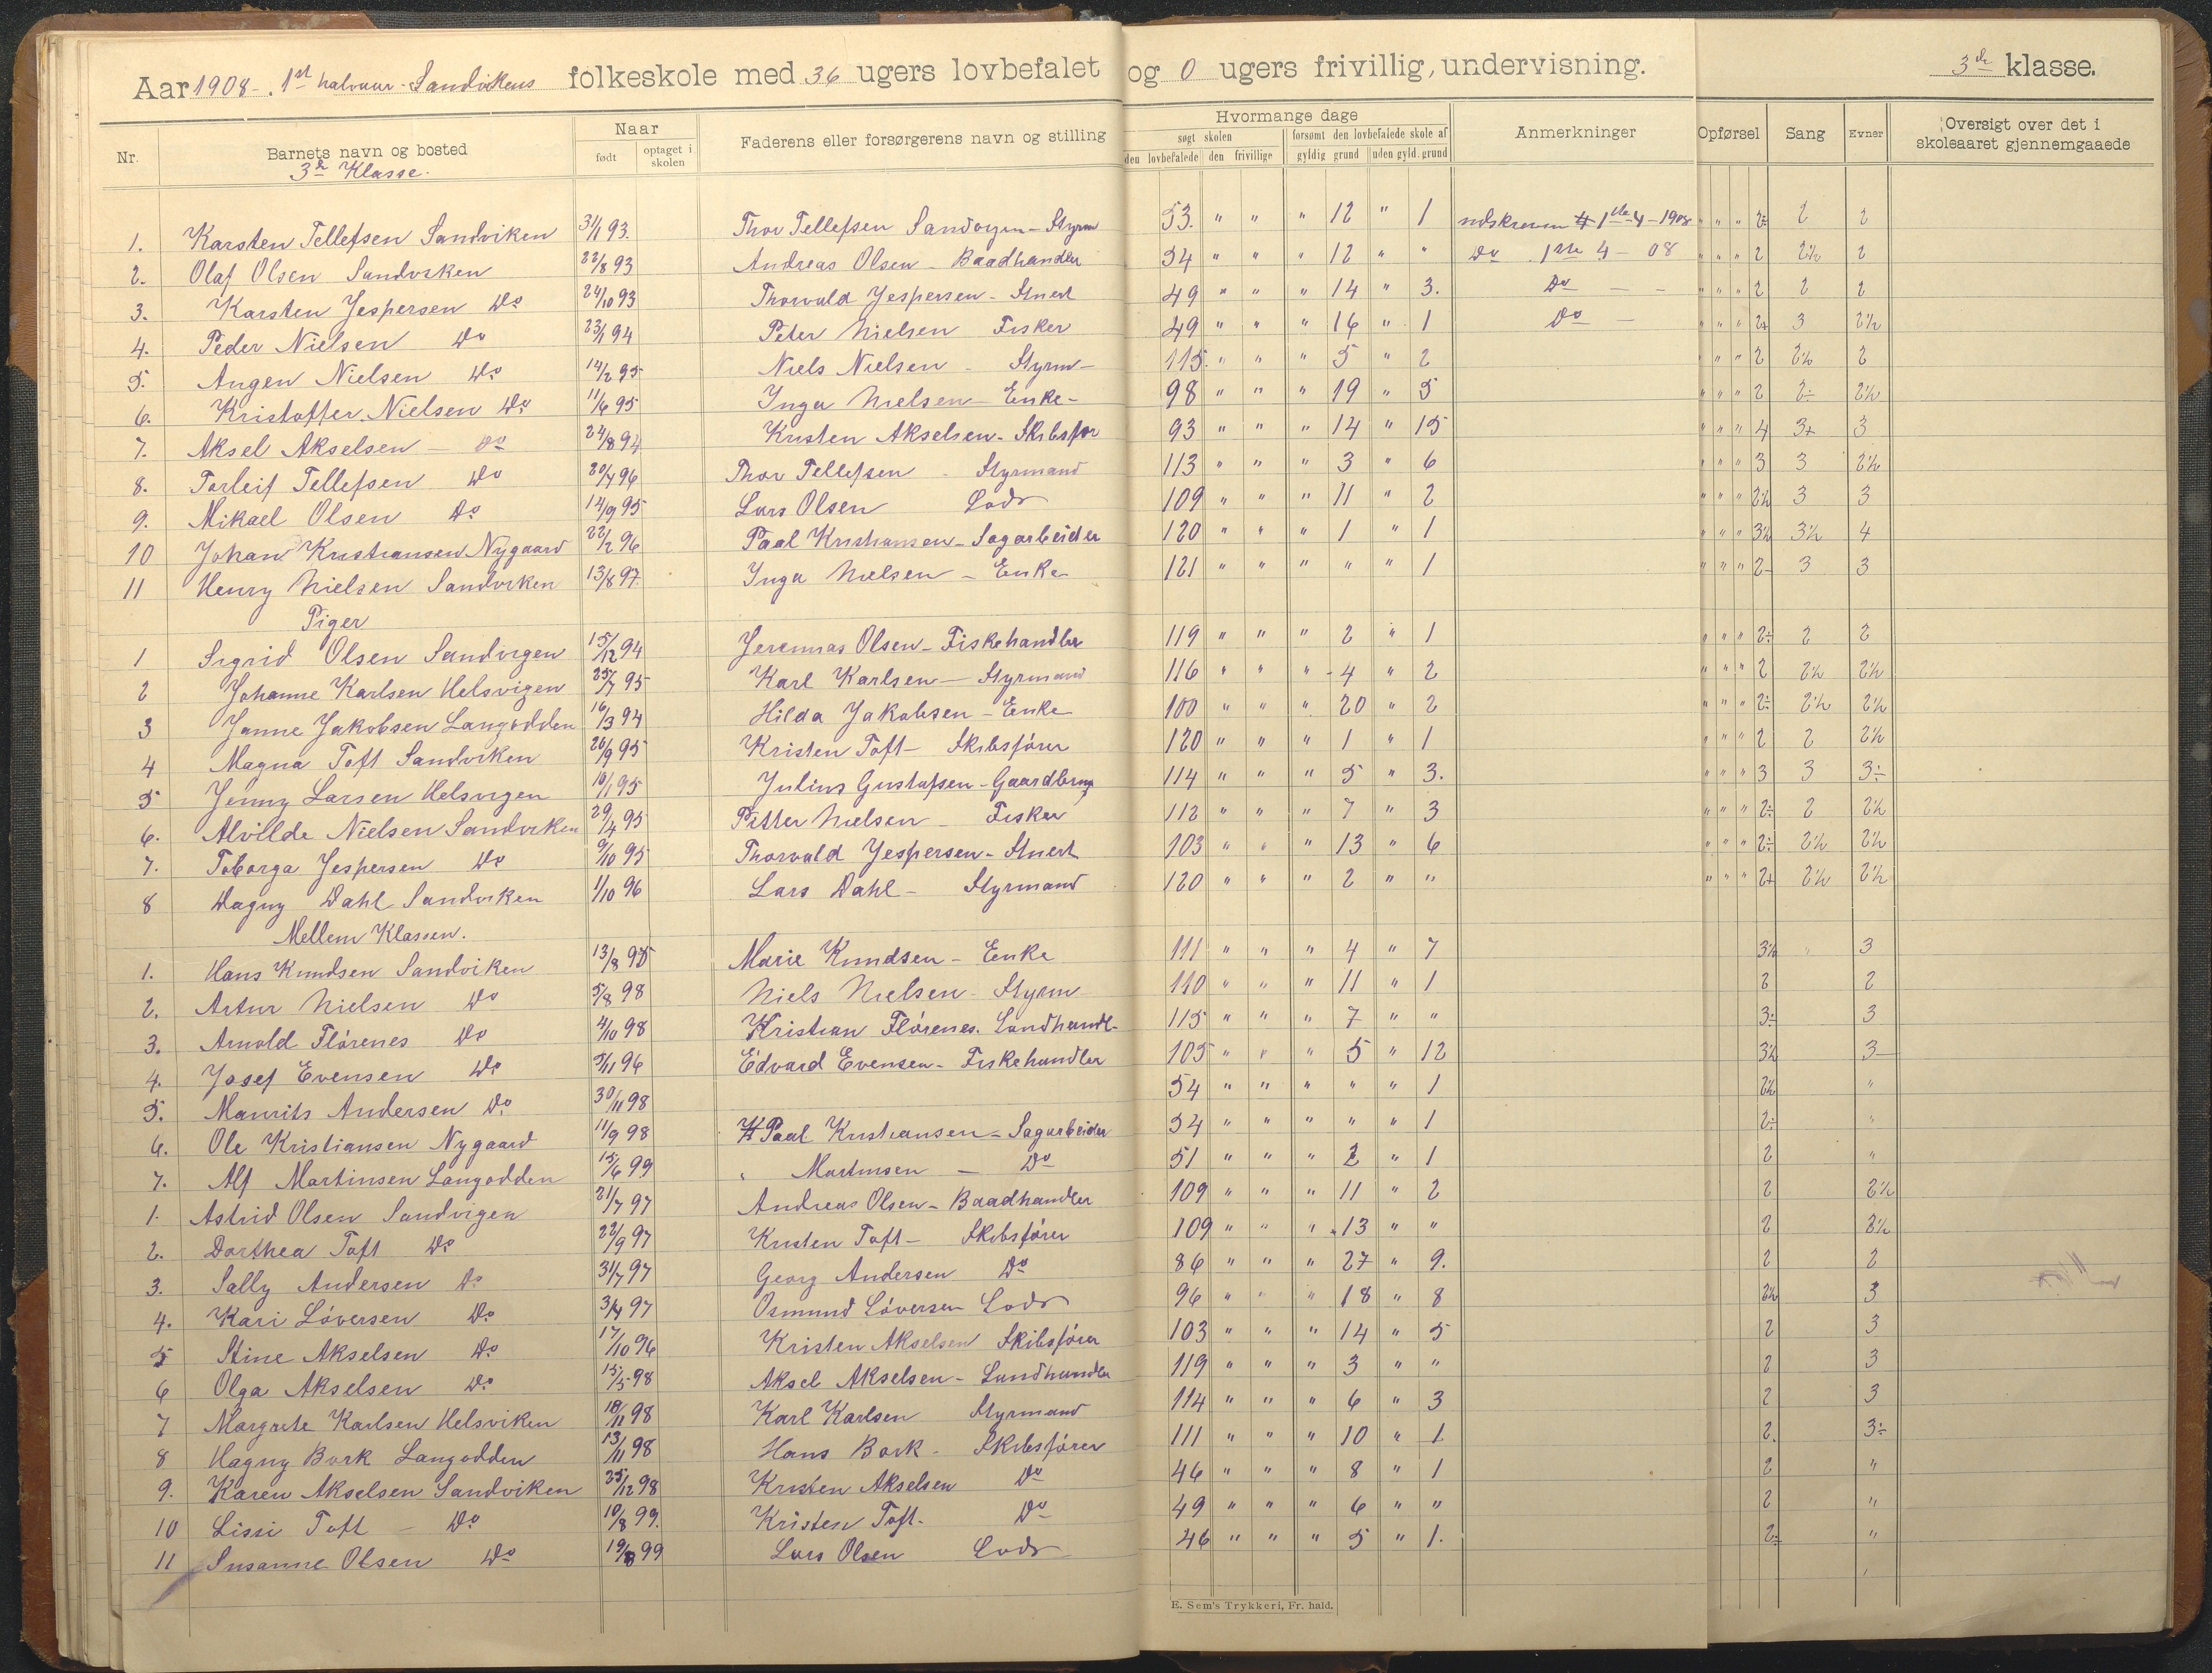 Aar 1908 - 1st halvaar - Sandvikens folkeskole med 36 ugers lovbefalet og 0 ugers frivillig, undervisning. 3de klasse.
Nr. Barnets navn og bosted Naar født optaget i skolen Faderens eller forsørgerens navn og stilling Hvormange dage søgt skolen den lovbefalede den frivillige forsømt den lovbefalede skole af gyldig grund uden gyld. grund Anmerkninger Opførsel Sang Evner Oversigt over det i skoleaaret gjennemgaaede
3de Klasse.
1. Karsten Tellefsen Sandviken 31/1 93. Thor Tellefsen Sandvigen - Styrm 53. " " " 12 " 1 1ste 4 - 1908 " " " 2÷ 2 2
2. Olaf Olsen Sandviken 22/8 93 Andreas Olsen - Baadhandler 54 " " " 12 " " Do 1ste 4 - 08 " " " 2 2½ 2
3. Karsten Jespersen Do 24/10 93 Thorvald Jespersen - Stuert 49 " " " 14 " 3. Do - - " " " 2 2 2
4. Peder Nielsen Do 23/1 94 Peter Nielsen Fisker 49 " " " 16 " 1 Do - " " " 2+ 3 2½
5. Angen Nielsen Do 14/2 95 Niels Nielsen - Styrm - 115. " " " 5 " 2 " " " 2 2½ 2
6. Kristoffer Nielsen Do 11/6 95 Inga Nielsen - Enke - 98 " " " 19 " 5 " " " 2 2÷ 2½
7. Aksel Akselsen - Do 24/8 94 Kristen Akselsen - Skibsfør 93 " " " 14 " 15 " " " 4 3+ 3
8. Torleif Tellefsen Do 20/4 96 Thor Tellefsen - Styrmand 113 " " " 3 " 6 " " " 3 3 2½
9. Mikael Olsen Do 14/9 95 Lars Olsen Lods 109 " " " 11 " 2 " " " 2½ 3 3
10 Johan Kristiansen Nygaard 22/2 96 Paal Kristiansen - Sagarbeider 120 " " " 1 " 1 " " " 3½ 3½ 4
11 Henry Nielsen Sandviken 13/8 97. Inga Nielsen - Enke 121 " " " " " 1 " " " 2- 3 3
Piger
1 Sigrid Olsen Sandvigen 15/12 94 Jeremias Olsen - Fiskehandler 119 " " " 2 " 1 " " " 2÷ 2 2
2 Johanne Karlsen Helsvigen 25/7 95 Karl Karlsen - Styrmand 116 " " " 4 " 2 " " " 2 2½ 2½
3 Janne Jakobsen Langodden 16/3 94 Hilda Jakobsen - Enke 100 " " " 20 " 2 " " " 2÷ 2½ 2½
4 Magna Toft Sandviken 26/9 95 Kristen Toft - Skibsfører 120 " " " 1 " 1 " " " 2 2 2½
5 Jenny Larsen Helsvigen 10/1 95 Julius Gustafsen - Gaardbrug 114 " " " 5 " 3. " " " 3 3 3÷
6. Alvilde Nielsen Sandviken 29/4 95 Petter Nielsen - Fisker 112 " " " 7 " 3 " " " 2÷ 2 2½
7. Toborga Jespersen Do 9/10 95 Thorvald Jespersen - Stuert 103 " " " 13 " 6 " " " 2÷ 2½ 2½
8 Dagny Dahl Sandviken 1/10 96 Lars Dahl - Styrmand 120 " " " 2 " " " " " 2+ 2½ 2½
Mellem Klassen.
1. Hans Knudsen Sandviken 13/8 95 Marie Knudsen - Enke 111 " " " 4 " 7 3½ " 3
2. Artur Nielsen Do 5/8 98 Niels Nielsen - Styrm 110 " " " 11 " 1 2 2
3. Arnold Flørenes Do 4/10 98 Kristian Flørenes. Landhandl- 115 " " " 7 " " 3÷ 3
4. Josef Evensen Do 5/11 96 Edvard Evensen - Fiskehandler 105 " " " 5 " 12 3½ 3-
5. Maurits Andersen Do 30/11 98 54 " " " " " 1 2½ "
6. Ole Kristiansen Nygaard 11/9 98 Paal Kristiansen - Sagarbeider 54 " " " " " 1 2÷ "
7. Alf Martinsen Langodden 15/6 99 " Martinsen - Do 51 " " " 2 " 1 2 "
1. Astrid Olsen Sandvigen 21/7 97 Andreas Olsen - Baadhandler 109 " " " 11 " 2 2 2½
2. Dorthea Toft Do 22/9 97 Kristen Toft - Skibsfører 109 " " " 13 " " 2 2½
3. Sally Andersen Do 31/7 97 Georg Andersen Do 86 " " " 27 " 9. 2 2
4. Kari Løversen Do 3/4 97 Osmund Løversen Lods 96 " " " 18 " 8 2½ 3
5 Stine Akselsen Do 17/10 96 Kristen Akselsen Skibsfører 103 " " " 14 " 5 2 3
6 Olga Akselsen Do 15/5 98 Aksel Akselsen - Landhandler 119 " " " 3 " " 2 3
7 Margrete Karlsen Helsviken 18/11 98 Karl Karlsen Styrmand 114 " " " 6 " 3 2 3
8 Hagny Bork Langodden 13/11 98 Hans Bork - Skibsfører 111 " " " 10 " 1 2. 3÷
9. Karen Akselsen Sandviken 25/12 98 Kristen Akselsen Do 46 " " " 8 " 1 2 "
10 Lissi Toft - Do 10/8 99. Kristen Toft - Do 49 " " " 6 " " 2 "
11 Susanne Olsen Do 19/8 99 Lars Olsen Lods 46 " " " 5 " 1. 2÷ "
E. Sem's Trykkeri, Fr. hald.